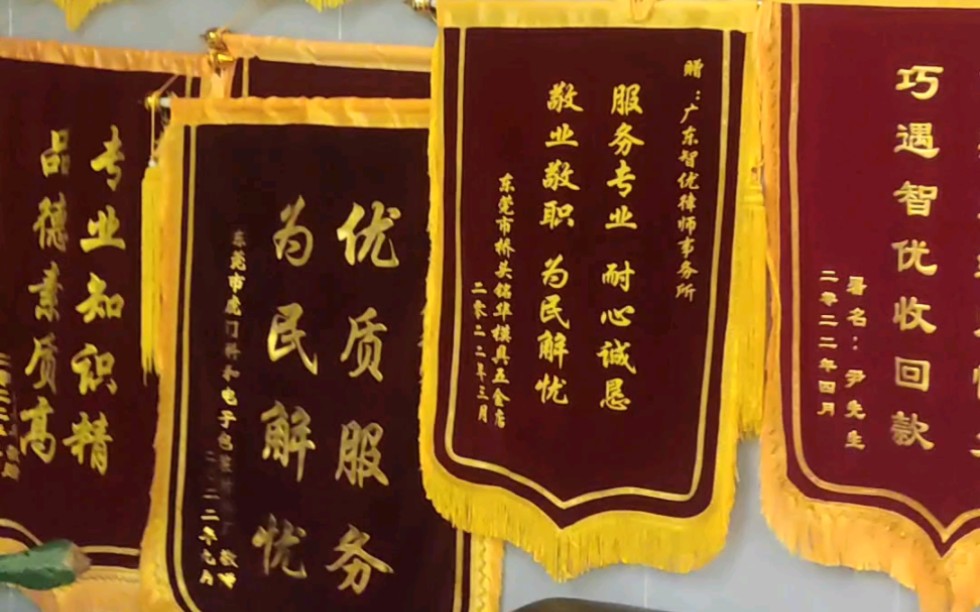 专业知识精
品德素质高
优质服务
为民解忧
赠：广东智优律师事务所
服务专业 耐心诚恳
敬业敬职 为民解忧
东莞市桥头铭华模具五金店
二零二二年三月
巧遇智优收回款
署名：尹先生
二零二二年四月